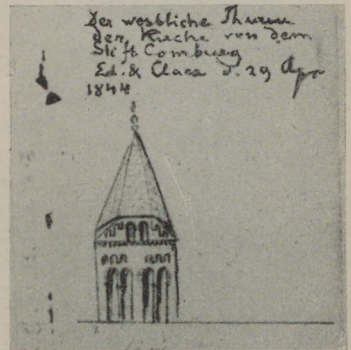 Der westliche Thurm
der Kirche von dem
Stift Comburg
Ed. & Clara d. 29 Apr
1844